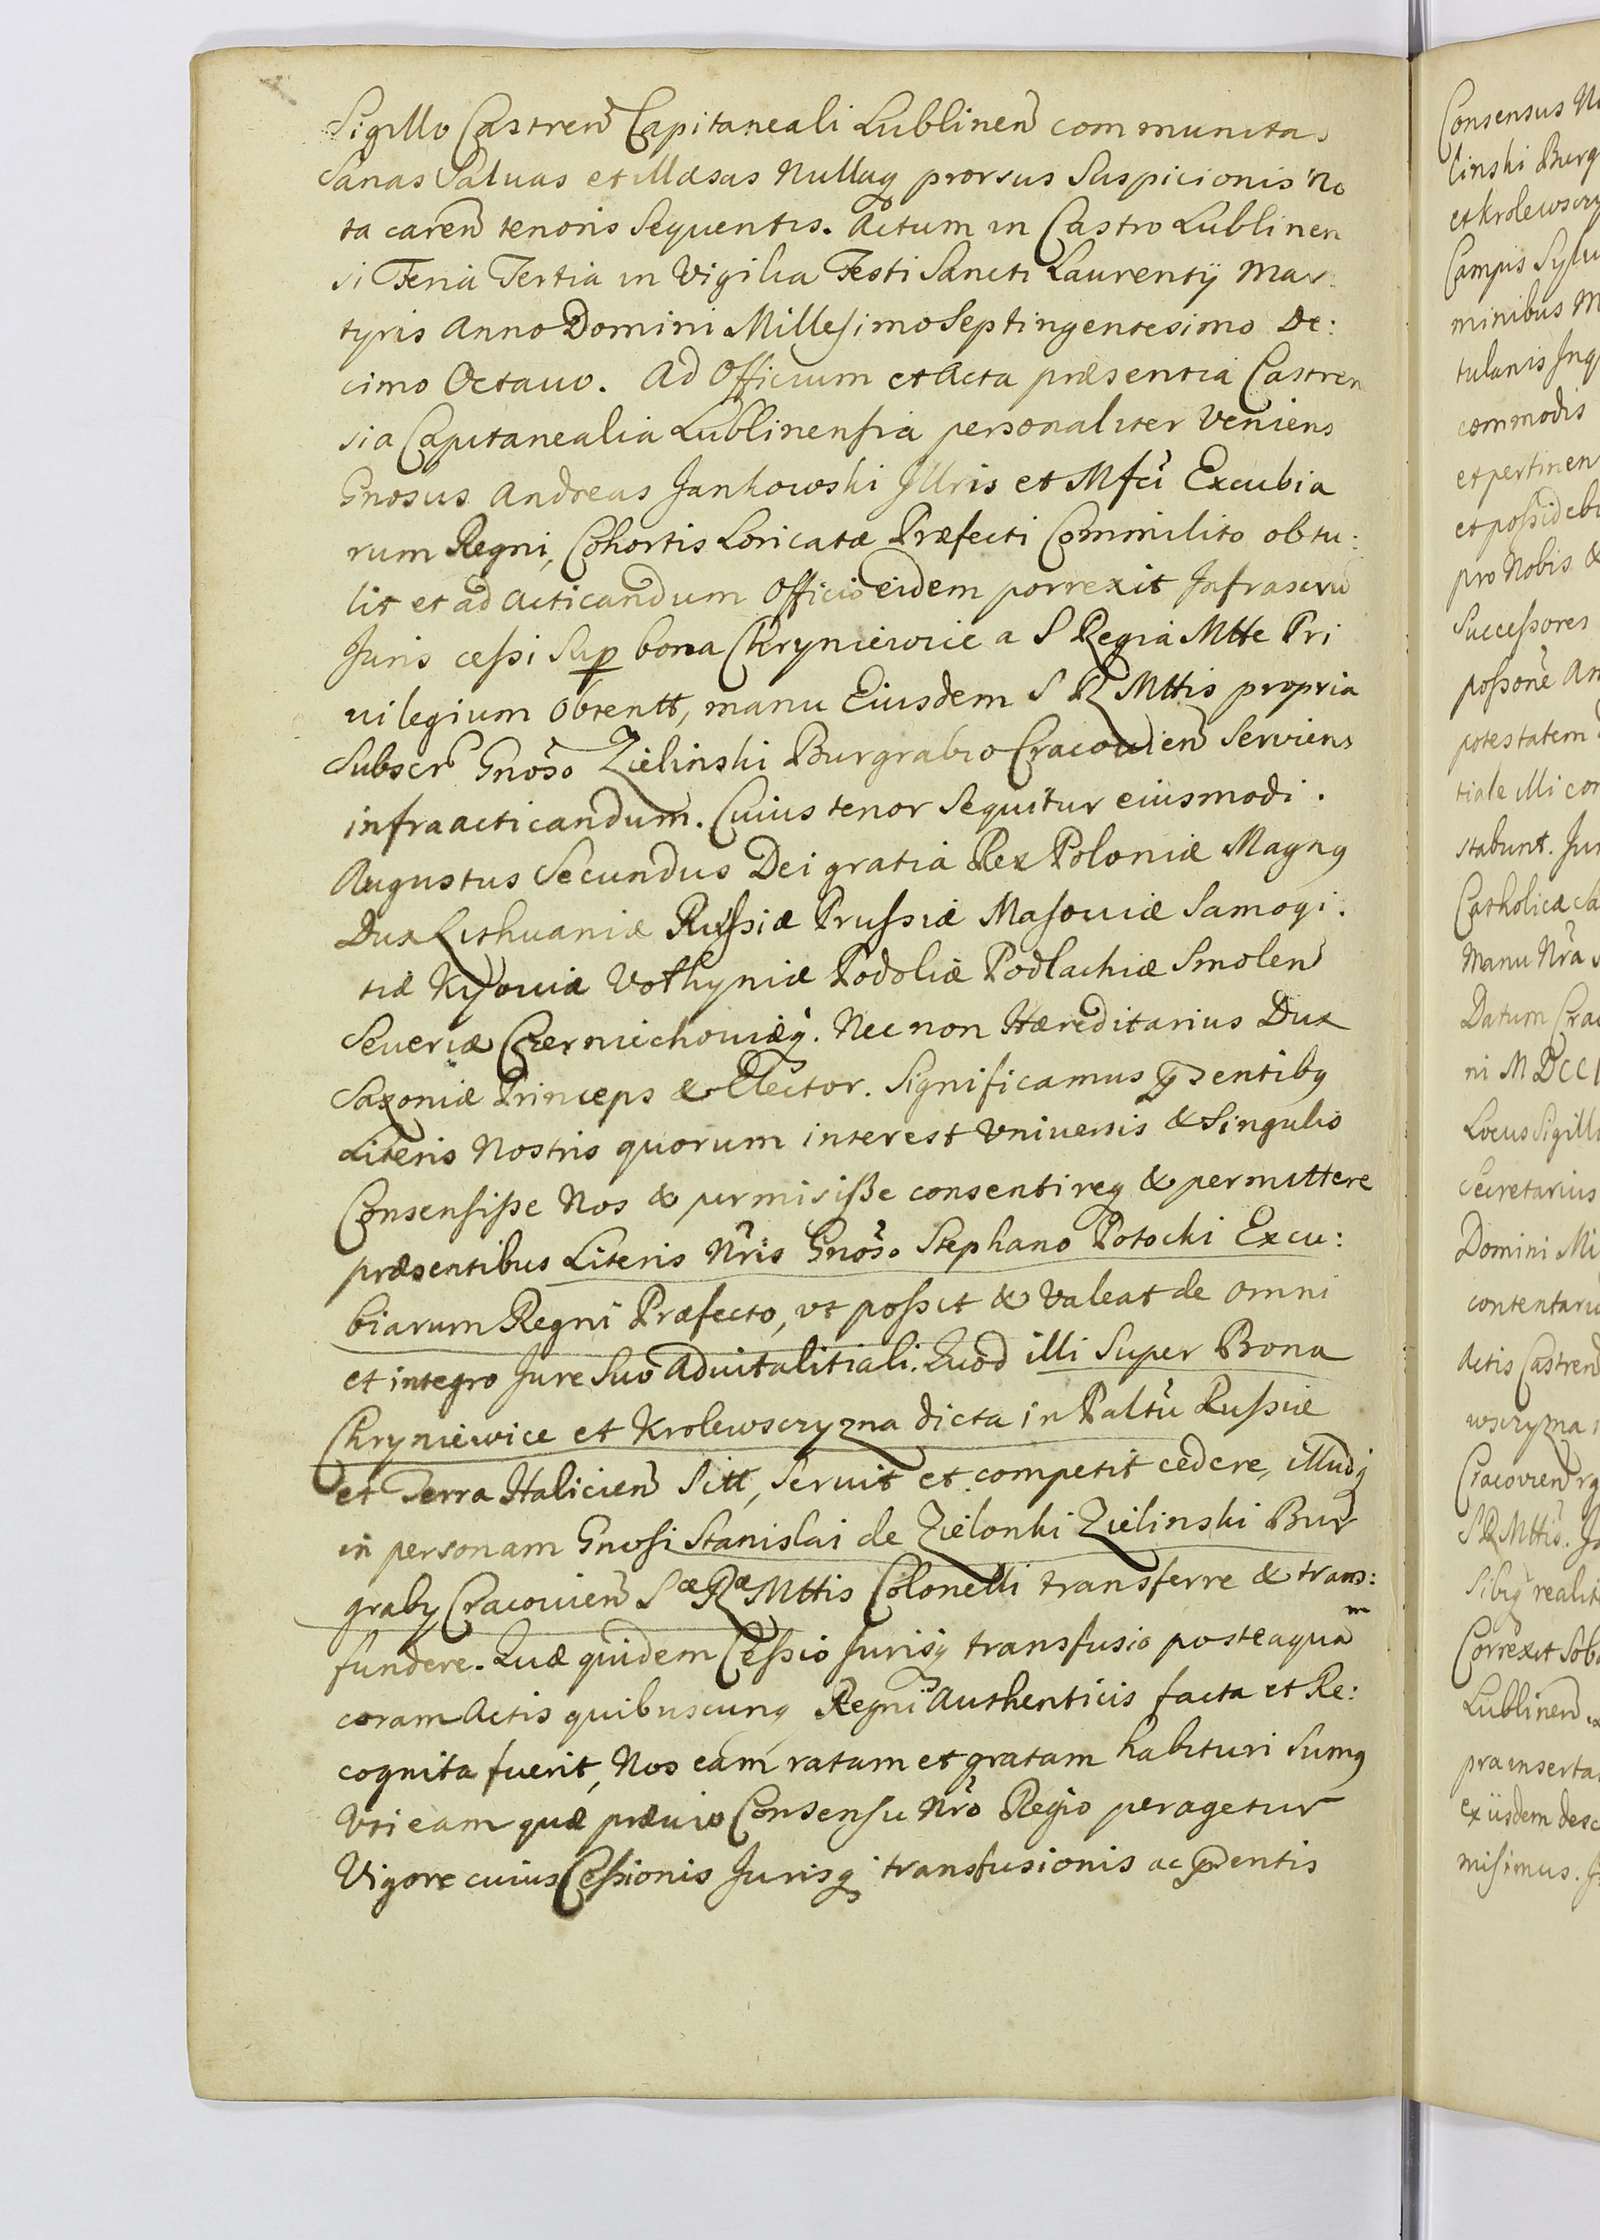 Sigillo Castren Capitaneali Lublinen communitas
Sanas Saluas et illæsas Nullaq prorsus Suspicionis no
ta caren tenoris Sequentis. Actum in Castro Lublinen
si Feria Tertia in Vigilia Festi Sancti Laurentÿ Mar
tyris Anno Domini Millesimo Septingentesimo De:
cimo Octauo. Ad Officium et Acta præsentia Castren
sia Capitanealia Lublinensia personaliter Veniens
Gnosus Andreas Jankowski Jllris et Mfci Excubia
rum Regni, Cohortis Loricatæ Præfecti Commilito obtu:
lit et ad Acticandum Officio eidem porrexit Jnfrascrü
Juris cessi Sup bona Chryniewice a S Regia Mtte Pri
uilegium Obtentt, manu Eiusdem S R Mttis propria
Subscr Gnoso Zielinski Burgrabio Cracouien Serviens
infraacticandum. Cuius tenor Sequitur eiusmodi.
Augustus Secundus Dei gratia Rex Poloniæ Magnq
Dux Lithuaniæ Russiæ Prussiæ Masouiæ Samogi:
tiæ Kyouiæ Volhyniæ Podoliæ Podlachiæ Smolen
Seueriæ Czerniechouiæq. Nec non Hæreditarius Dux
Saxoniæ Princeps & Elector. Significamus pntibq
Literis Nostris quorum interest Vniuersis & Singulis
Consensisse Nos & permisisse consentireq & permittere
præsentibus Literis Nris Gnoso Stephano Potocki Excu:
biarum Regni Præfecto, vt possit & Valeat de omni
et integro Jure Suo Aduitalitiali. Quod illi Super Bona
Chryniewice et Krolewsczyzna dicta in Paltu Russiæ
et Terra Halicien Sitt, Seruit et competit cedere, illudq
in personam Gnosi Stanislai de Zielonki Zielinski Bur
grabÿ Cracouien Sæ Ræ Mttis Colonelli transferre & trans:
fundere. Quæ quidem Cessio Jurisq transfusio posteaquam
coram Actis quibuscunq Regni Authenticis facta et Re:
cognita fuerit, Nos eam ratam et gratam habituri Sumq
Vti eam quæ præuio Consensu Nro Regio peragetur
Vigore cuius Cessionis Jurisq transfusionis ac pntis
Consensus
linski Burg
et Krolewsczy
Campis Sylu
minibus M
tulanis Jnq
commodis
et pertinen
et possideb
pro Nobis &
Successores
possone An
potestatem
tiale illi con
stabunt. Jur
Catholicæ Sa
Manu Nra
Datum Crac
ni MDCCX
Locus Sigilli
Secretarius
Domini Mi
contentaru
Actis Castren
wsczyzna
Cracovien
S R Mttis. Jo
Sibiq realit
Correxit Sob
Lublinen.
pra inserta
ex ijsdem desc
misimus.